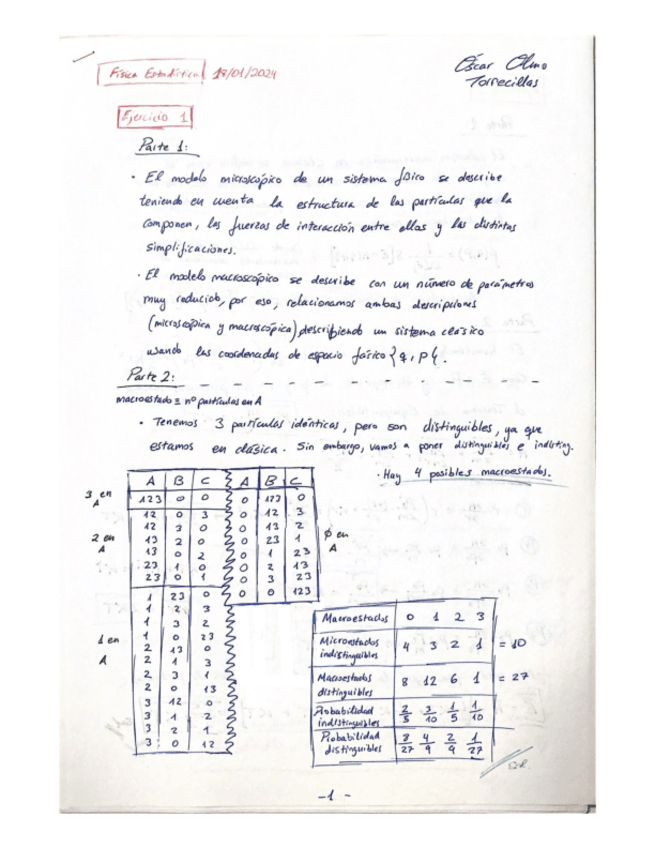 Física Estadística 18/01/2024
Óscar Olmo
Torrecillas
Ejercicio 1
Parte 1:
· El modelo microscópico de un sistema físico se describe
teniendo en cuenta la estructura de las partículas que la
componen, las fuerzas de interacción entre ellas y las distintas
simplificaciones.
· El modelo macroscópico se describe con un número de parámetros
muy reducido, por eso, relacionamos ambas descripciones
(microscópica y macroscópica) describiendo un sistema clásico
usando las coordenadas de espacio fásico {q, p}.
Parte 2:
macroestado ≡ nº partículas en A
· Tenemos 3 partículas idénticas, pero son distinguibles, ya que
estamos en clásica. Sin embargo, vamos a poner distinguibles e indisting.
· Hay 4 posibles macroestados.
A B C A B C
3 en A
123 0 0 0 123 0
12 0 3 0 12 3
12 3 0 0 13 2
2 en A
13 2 0 0 23 1
Ø en A
13 0 2 0 1 23
23 1 0 0 2 13
23 0 1 0 3 23
0 0 123
1 23 0
1 2 3
1 3 2
1 0 23
1 en A
2 13 0
2 1 3
2 3 1
2 0 13
3 12 0
3 1 2
3 2 1
3 0 12
Macroestados 0 1 2 3
Microestados indistinguibles 4 3 2 1 = 10
Macroestados distinguibles 8 12 6 1 = 27
Probabilidad indistinguibles 2/5 3/10 1/5 1/10
Probabilidad distinguibles 8/27 4/9 2/9 1/27
-1-